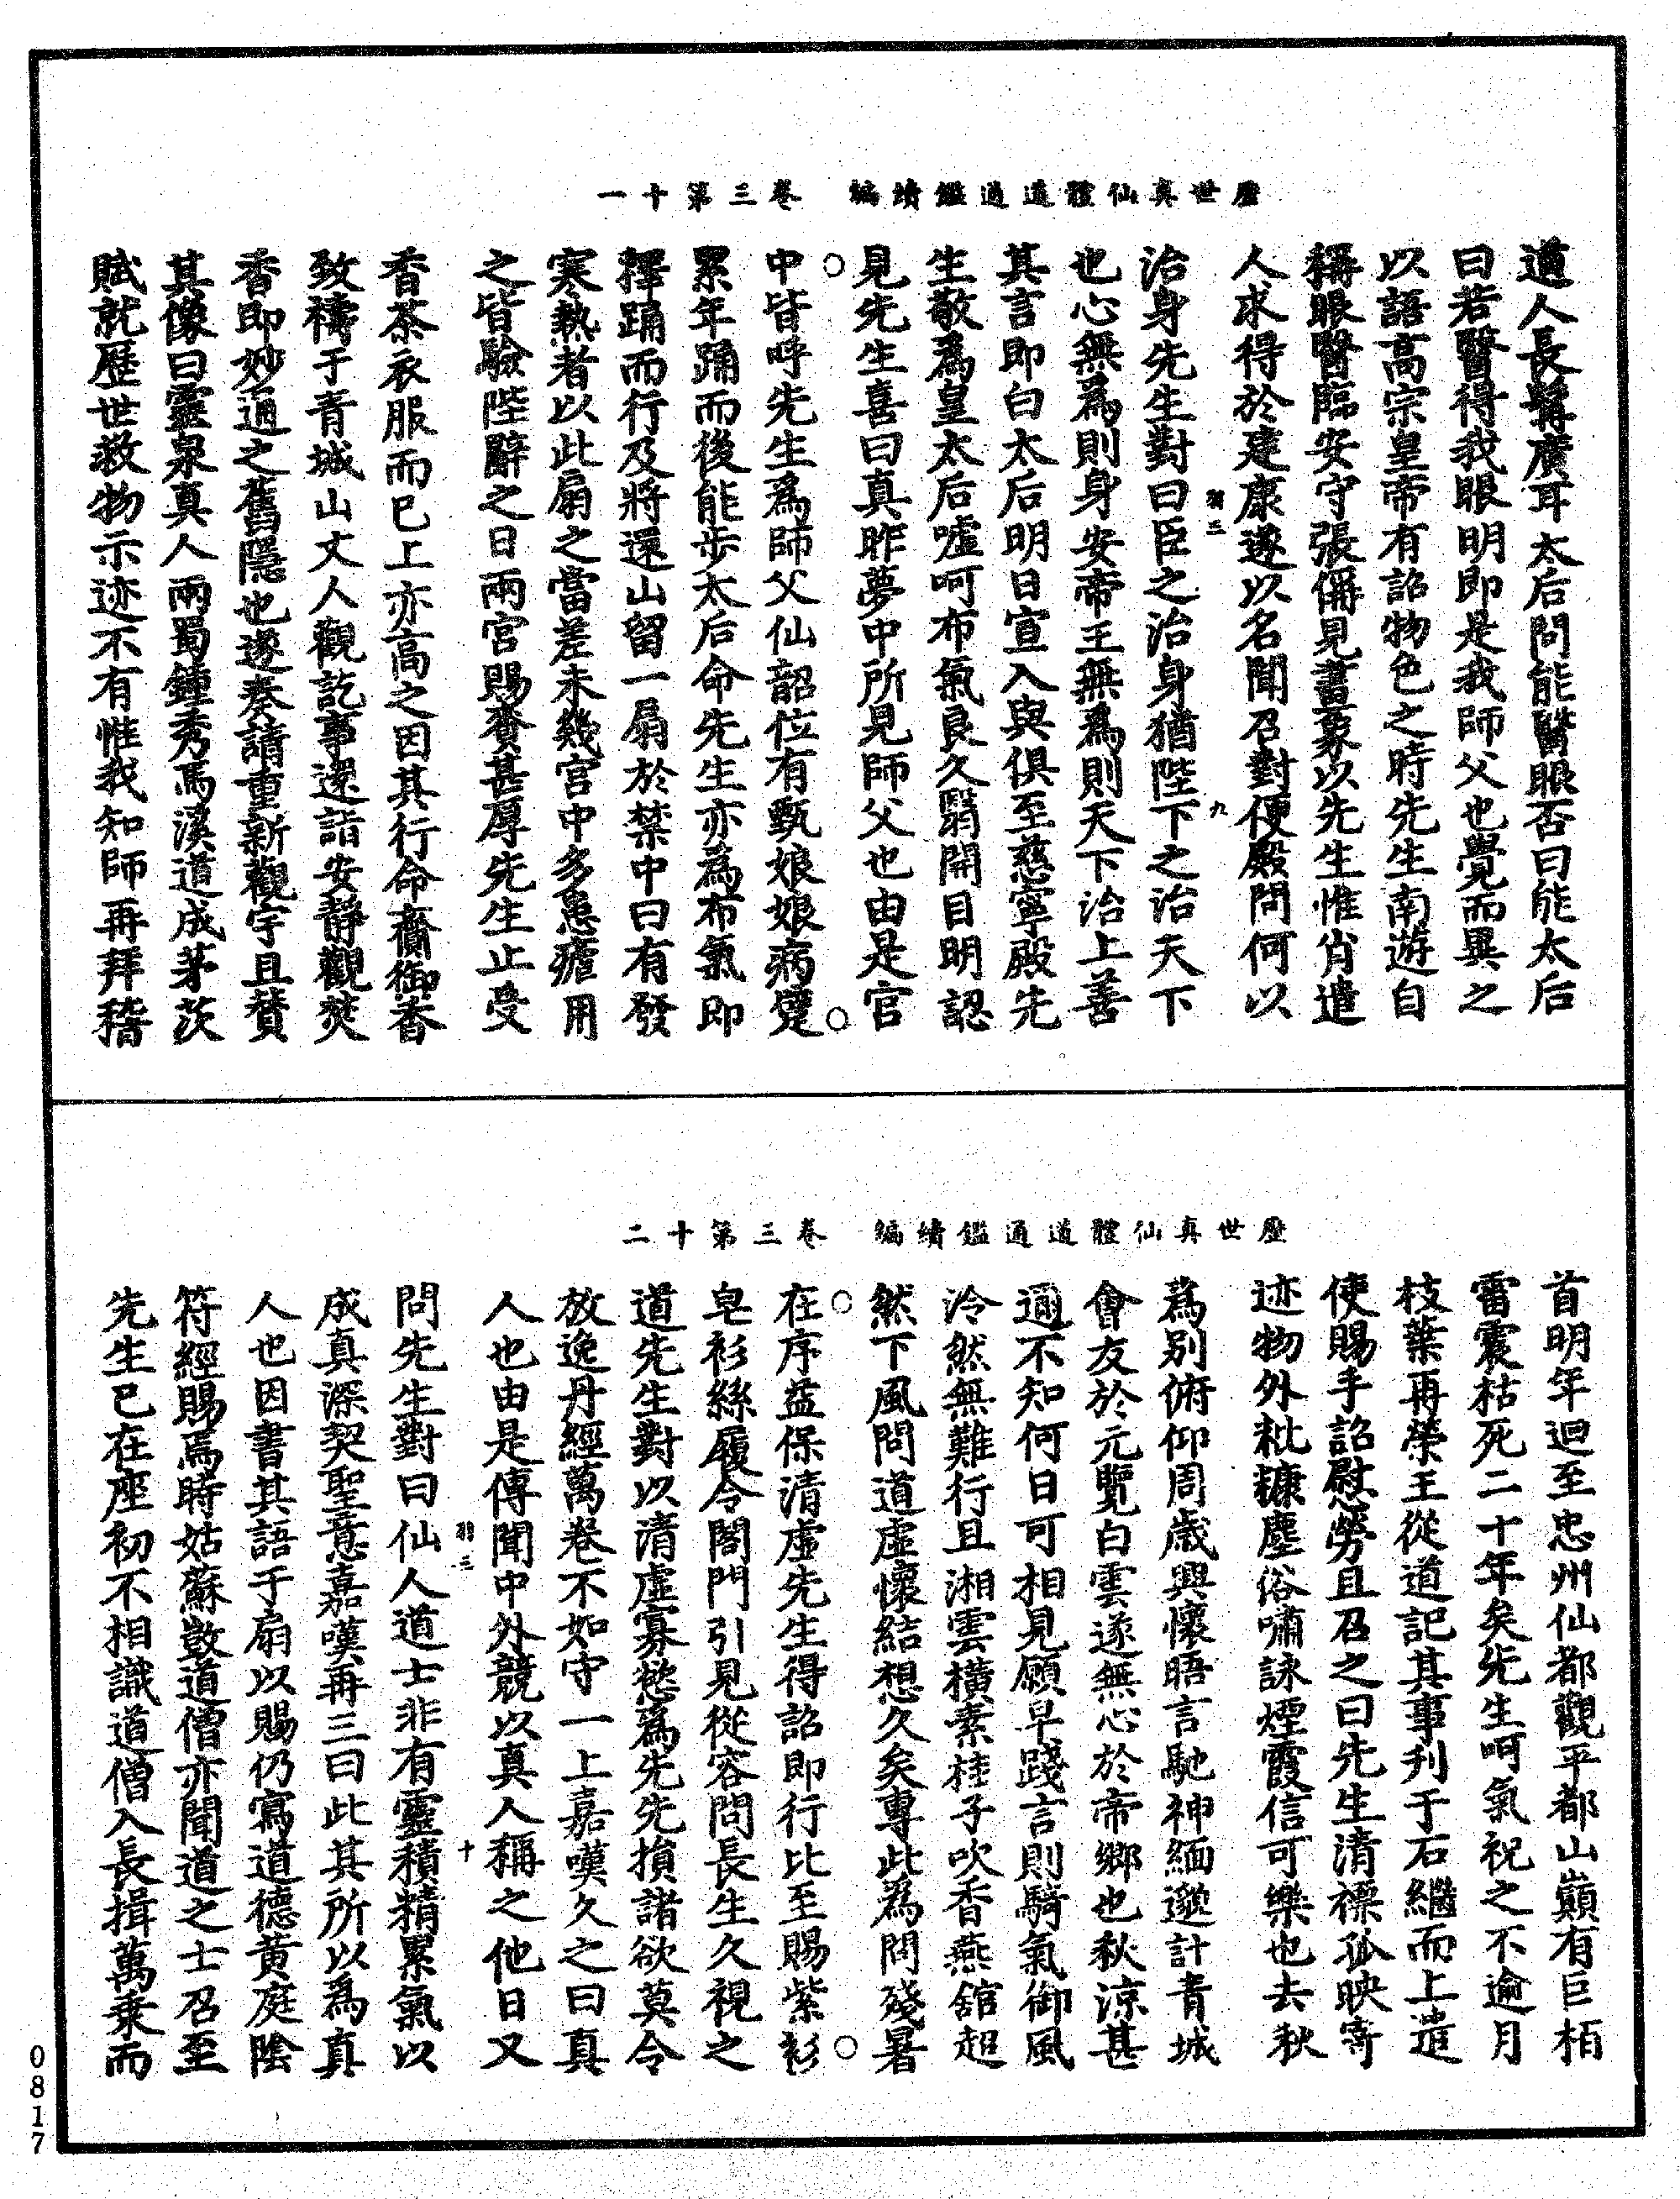 歷世真仙體道通鑑續編　卷三第十一
道人長髯廣耳太后問能醫眼否曰能太后
曰若醫得我眼明即是我師父也覺而異之
以語高宗皇帝有詔物色之時先生南遊自
稱眼醫臨安守張偁見畫象以先生惟肖遣
人求得於建康遂以名聞召對便殿問何以
羽三　九
治身先生對曰臣之治身猶陛下之治天下
也心無為則身安帝王無為則天下治上善
其言即白太后明日宣入與俱至慈寧殿先
生敬為皇太后噓呵布氣良久翳開目明認
見先生喜曰真昨夢中所見師父也由是宮
中皆呼先生為師父仙韶位有甄娘娘病躄
累年踊而後能步太后命先生亦為布氣即
擇踊而行及將還山留一扇於禁中曰有發
寒熱者以此扇之當差未幾宮中多患瘧用
之皆驗陛辭之日兩宮賜賚甚厚先生止受
香茶衣服而已上亦高之因其行命齎御香
致禱于青城山丈人觀訖事還詣安靜觀焚
香即妙通之舊隱也遂奏請重新觀宇且贊
其像曰靈泉真人兩蜀鍾秀馬溪道成茅茨
賦就歷世救物示迹不有惟我知師再拜稽
歷世真仙體道通鑑續編　卷三第十二
首明年迴至忠州仙都觀平都山巔有巨栢
雷震枯死二十年矣先生呵氣祝之不逾月
枝葉再榮王從道記其事刋于石繼而上遣
使賜手詔慰勞且召之曰先生清標孤映寄
迹物外粃糠塵俗嘯詠煙霞信可樂也去秋
為別俯仰周歲興懷晤言馳神緬邈計青城
會友於元覽白雲遂無心於帝鄉也秋涼甚
邇不知何日可相見願早踐言則騎氣御風
泠然無難行且湘雲橫素桂子吹香燕舘超
然下風問道虛懷結想久矣專此為問殘暑
在序益保清虛先生得詔即行比至賜紫衫
皂衫絲履令閤門引見從容問長生久視之
道先生對以清虛寡慾為先先損諸欲莫令
放逸丹經萬卷不如守一上嘉嘆久之曰真
人也由是傳聞中外競以真人稱之他日又
羽三　十
問先生對曰仙人道士非有靈積精累氣以
成真深契聖意嘉嘆再三曰此其所以為真
人也因書其語于扇以賜仍寫道德黃庭陰
符經賜焉時姑蘇敳道僧亦聞道之士召至
先生已在座初不相識道僧入長揖萬乘而
0817